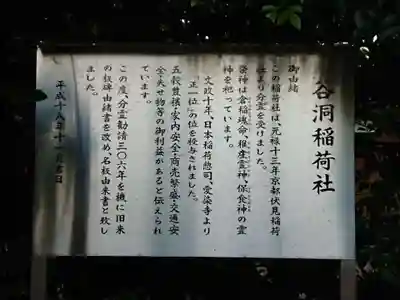 谷洞稲荷社
御由緒
この稲荷社は、元禄十三年京都伏見稲荷
社より分霊を受けました。
祭神は倉稲魂命、稚産霊神、保食神の霊
神を祀っています。
文政十年、日本稲荷惣司、愛染寺より
「正一位」の位を授与されました。
五穀豊穣・家内安全・商売繁盛・交通安
全・失せ物等の御利益があると伝えられ
ています。
この度、分霊勧請三〇六年を機に旧来
の板碑由緒書を改め、名板由来書と致し
ました。
平成十八年十一月吉日